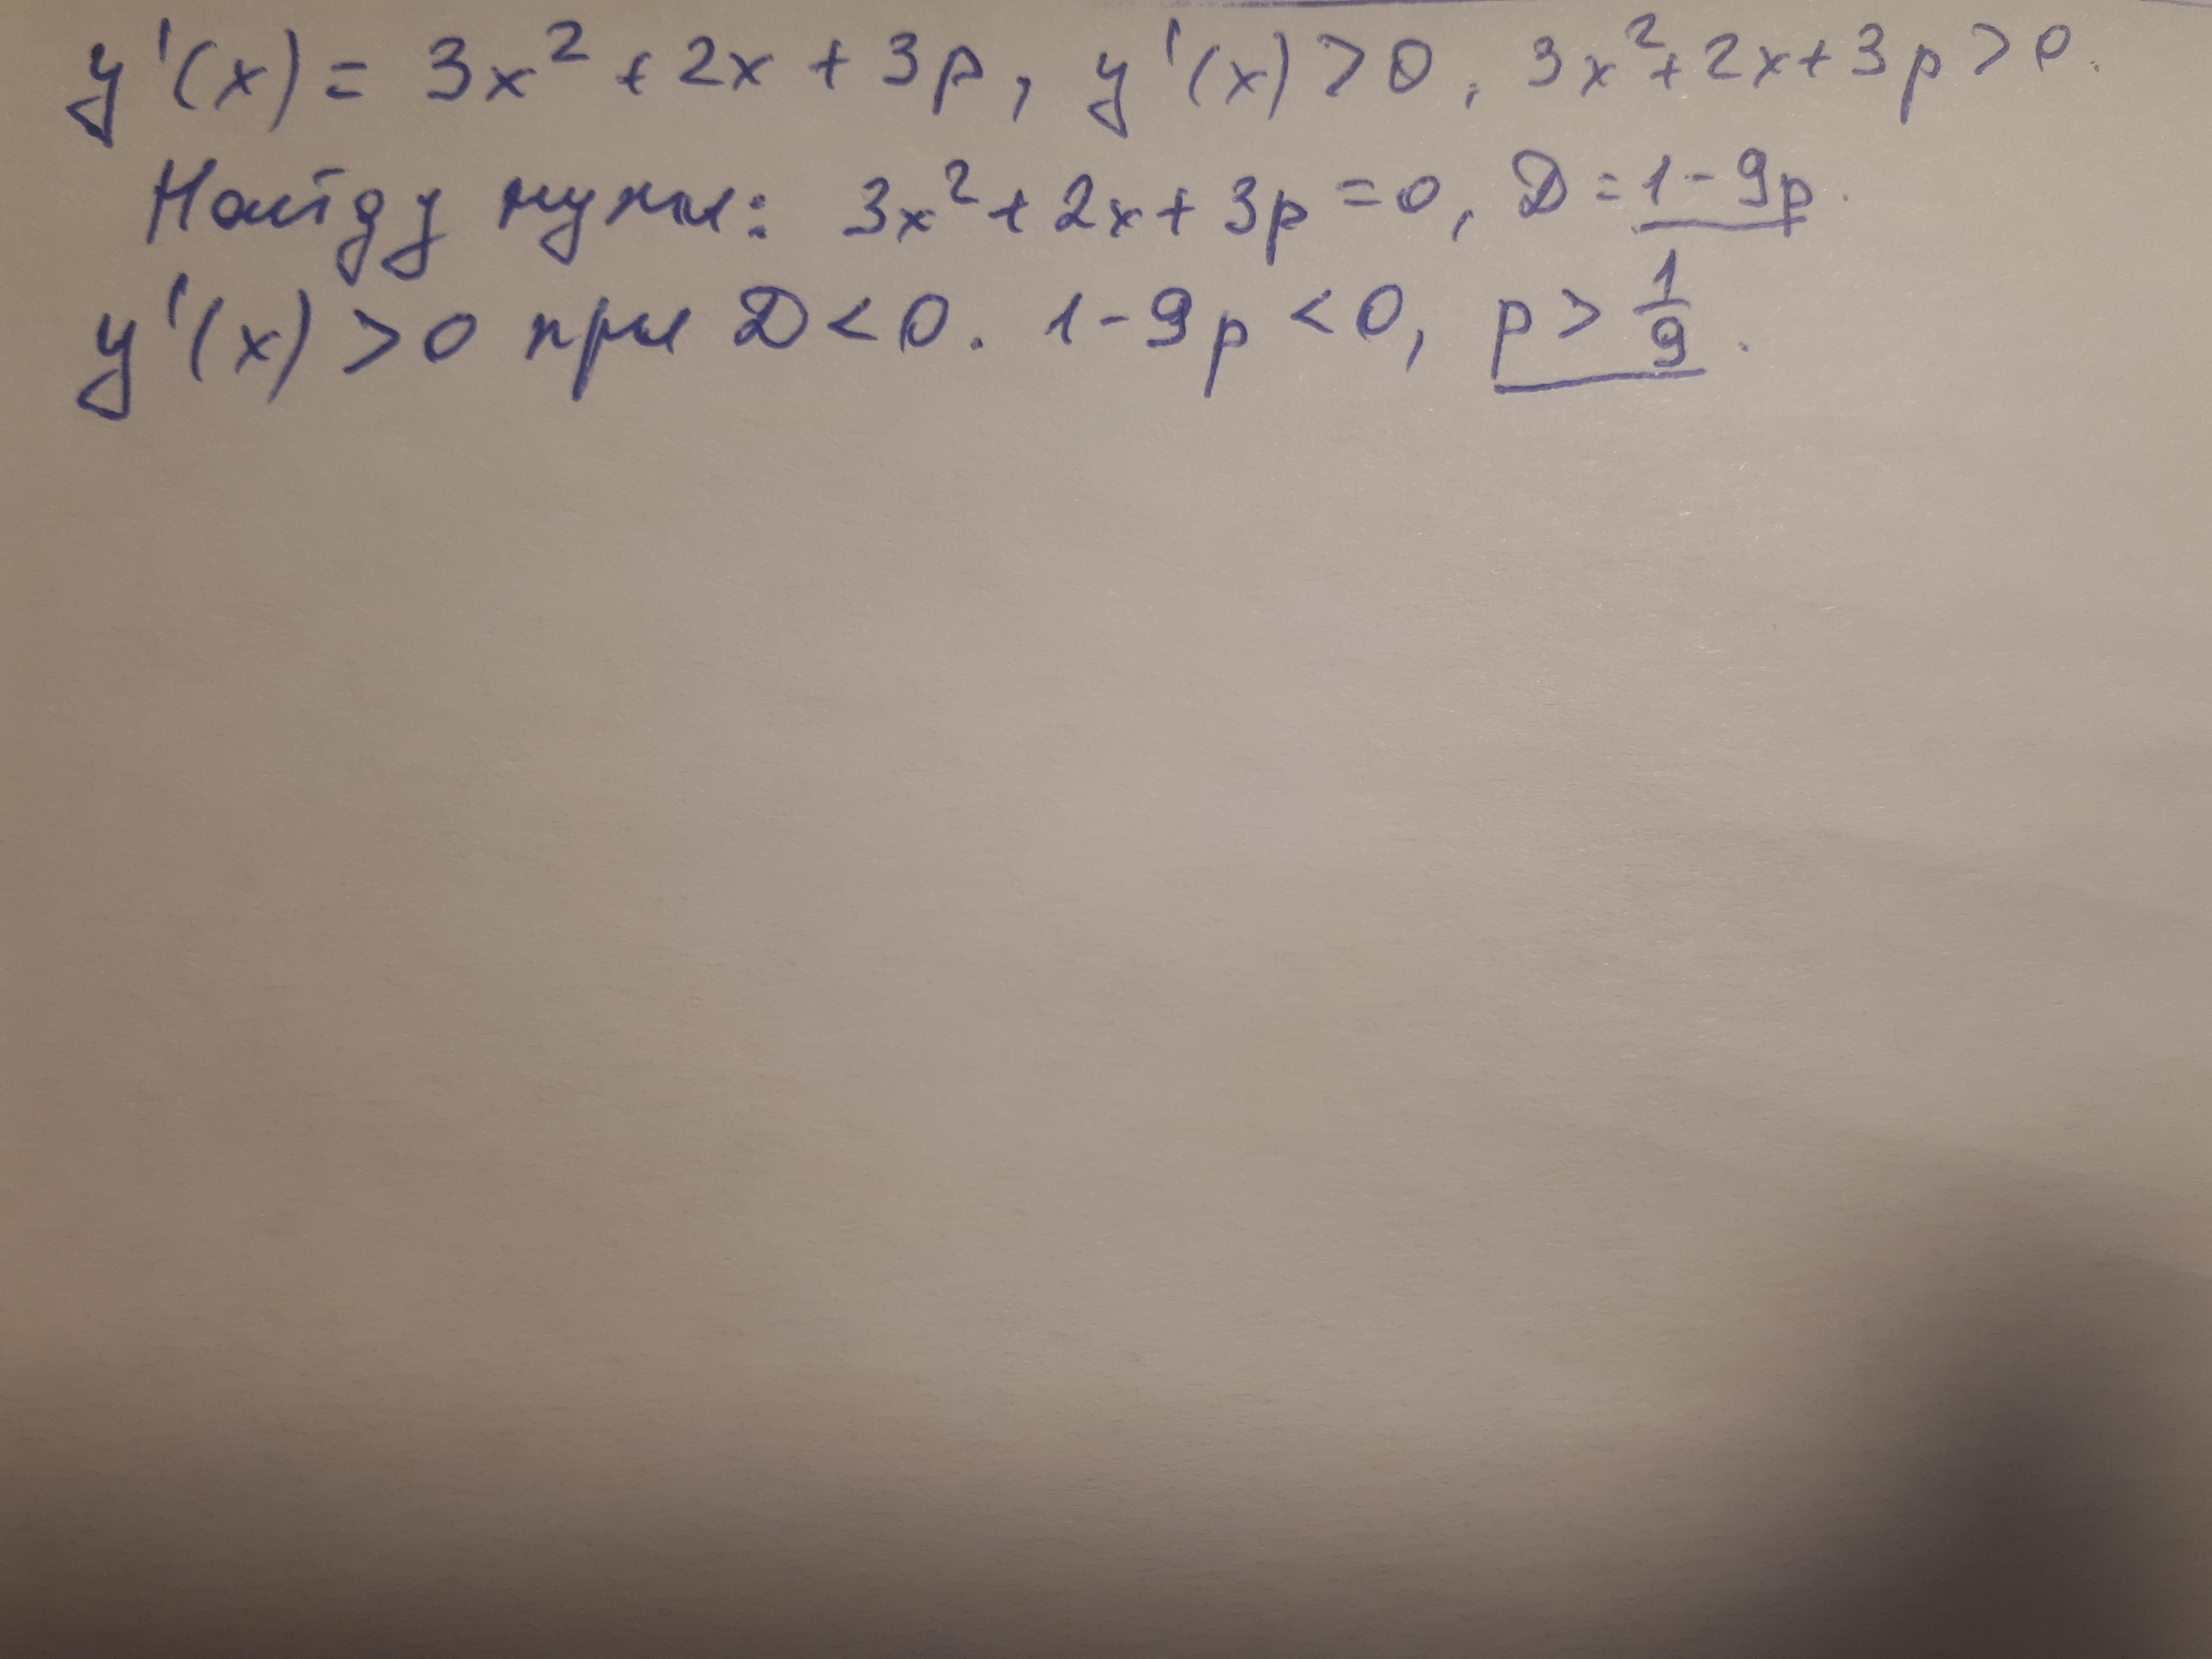 y'(x) = 3x² + 2x + 3p, y'(x) > 0, 3x² + 2x + 3p > 0.
Найду нули: 3x² + 2x + 3p = 0, D = 1 - 9p.
y'(x) > 0 при D < 0. 1 - 9p < 0, p > 1/9.